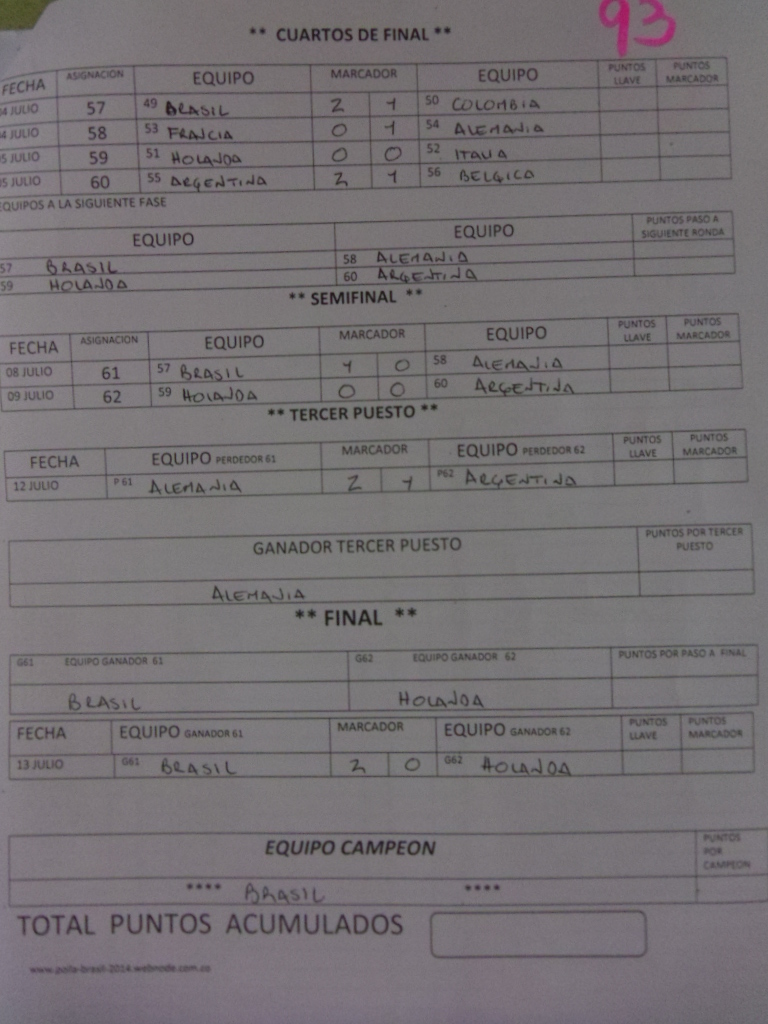 93
** CUARTOS DE FINAL **
FECHA ASIGNACION EQUIPO MARCADOR EQUIPO PUNTOS LLAVE PUNTOS MARCADOR
04 JULIO 57 49 BRASIL 2 1 50 COLOMBIA
04 JULIO 58 53 FRANCIA 0 1 54 ALEMANIA
05 JULIO 59 51 HOLANDA 0 0 52 ITALIA
05 JULIO 60 55 ARGENTINA 2 1 56 BELGICA
EQUIPOS A LA SIGUIENTE FASE
EQUIPO EQUIPO PUNTOS PASO A SIGUIENTE RONDA
57 BRASIL 58 ALEMANIA
59 HOLANDA 60 ARGENTINA
** SEMIFINAL **
FECHA ASIGNACION EQUIPO MARCADOR EQUIPO PUNTOS LLAVE PUNTOS MARCADOR
08 JULIO 61 57 BRASIL 1 0 58 ALEMANIA
09 JULIO 62 59 HOLANDA 0 0 60 ARGENTINA
** TERCER PUESTO **
FECHA EQUIPO PERDEDOR 61 MARCADOR EQUIPO PERDEDOR 62 PUNTOS LLAVE PUNTOS MARCADOR
12 JULIO P 61 ALEMANIA 2 1 P62 ARGENTINA
GANADOR TERCER PUESTO PUNTOS POR TERCER PUESTO
ALEMANIA
** FINAL **
G61 EQUIPO GANADOR 61 G62 EQUIPO GANADOR 62 PUNTOS POR PASO A FINAL
BRASIL HOLANDA
FECHA EQUIPO GANADOR 61 MARCADOR EQUIPO GANADOR 62 PUNTOS LLAVE PUNTOS MARCADOR
13 JULIO G61 BRASIL 2 0 G62 HOLANDA
EQUIPO CAMPEON PUNTOS POR CAMPEON
**** BRASIL ****
TOTAL PUNTOS ACUMULADOS
www.polla-brasil-2014.webnode.com.co